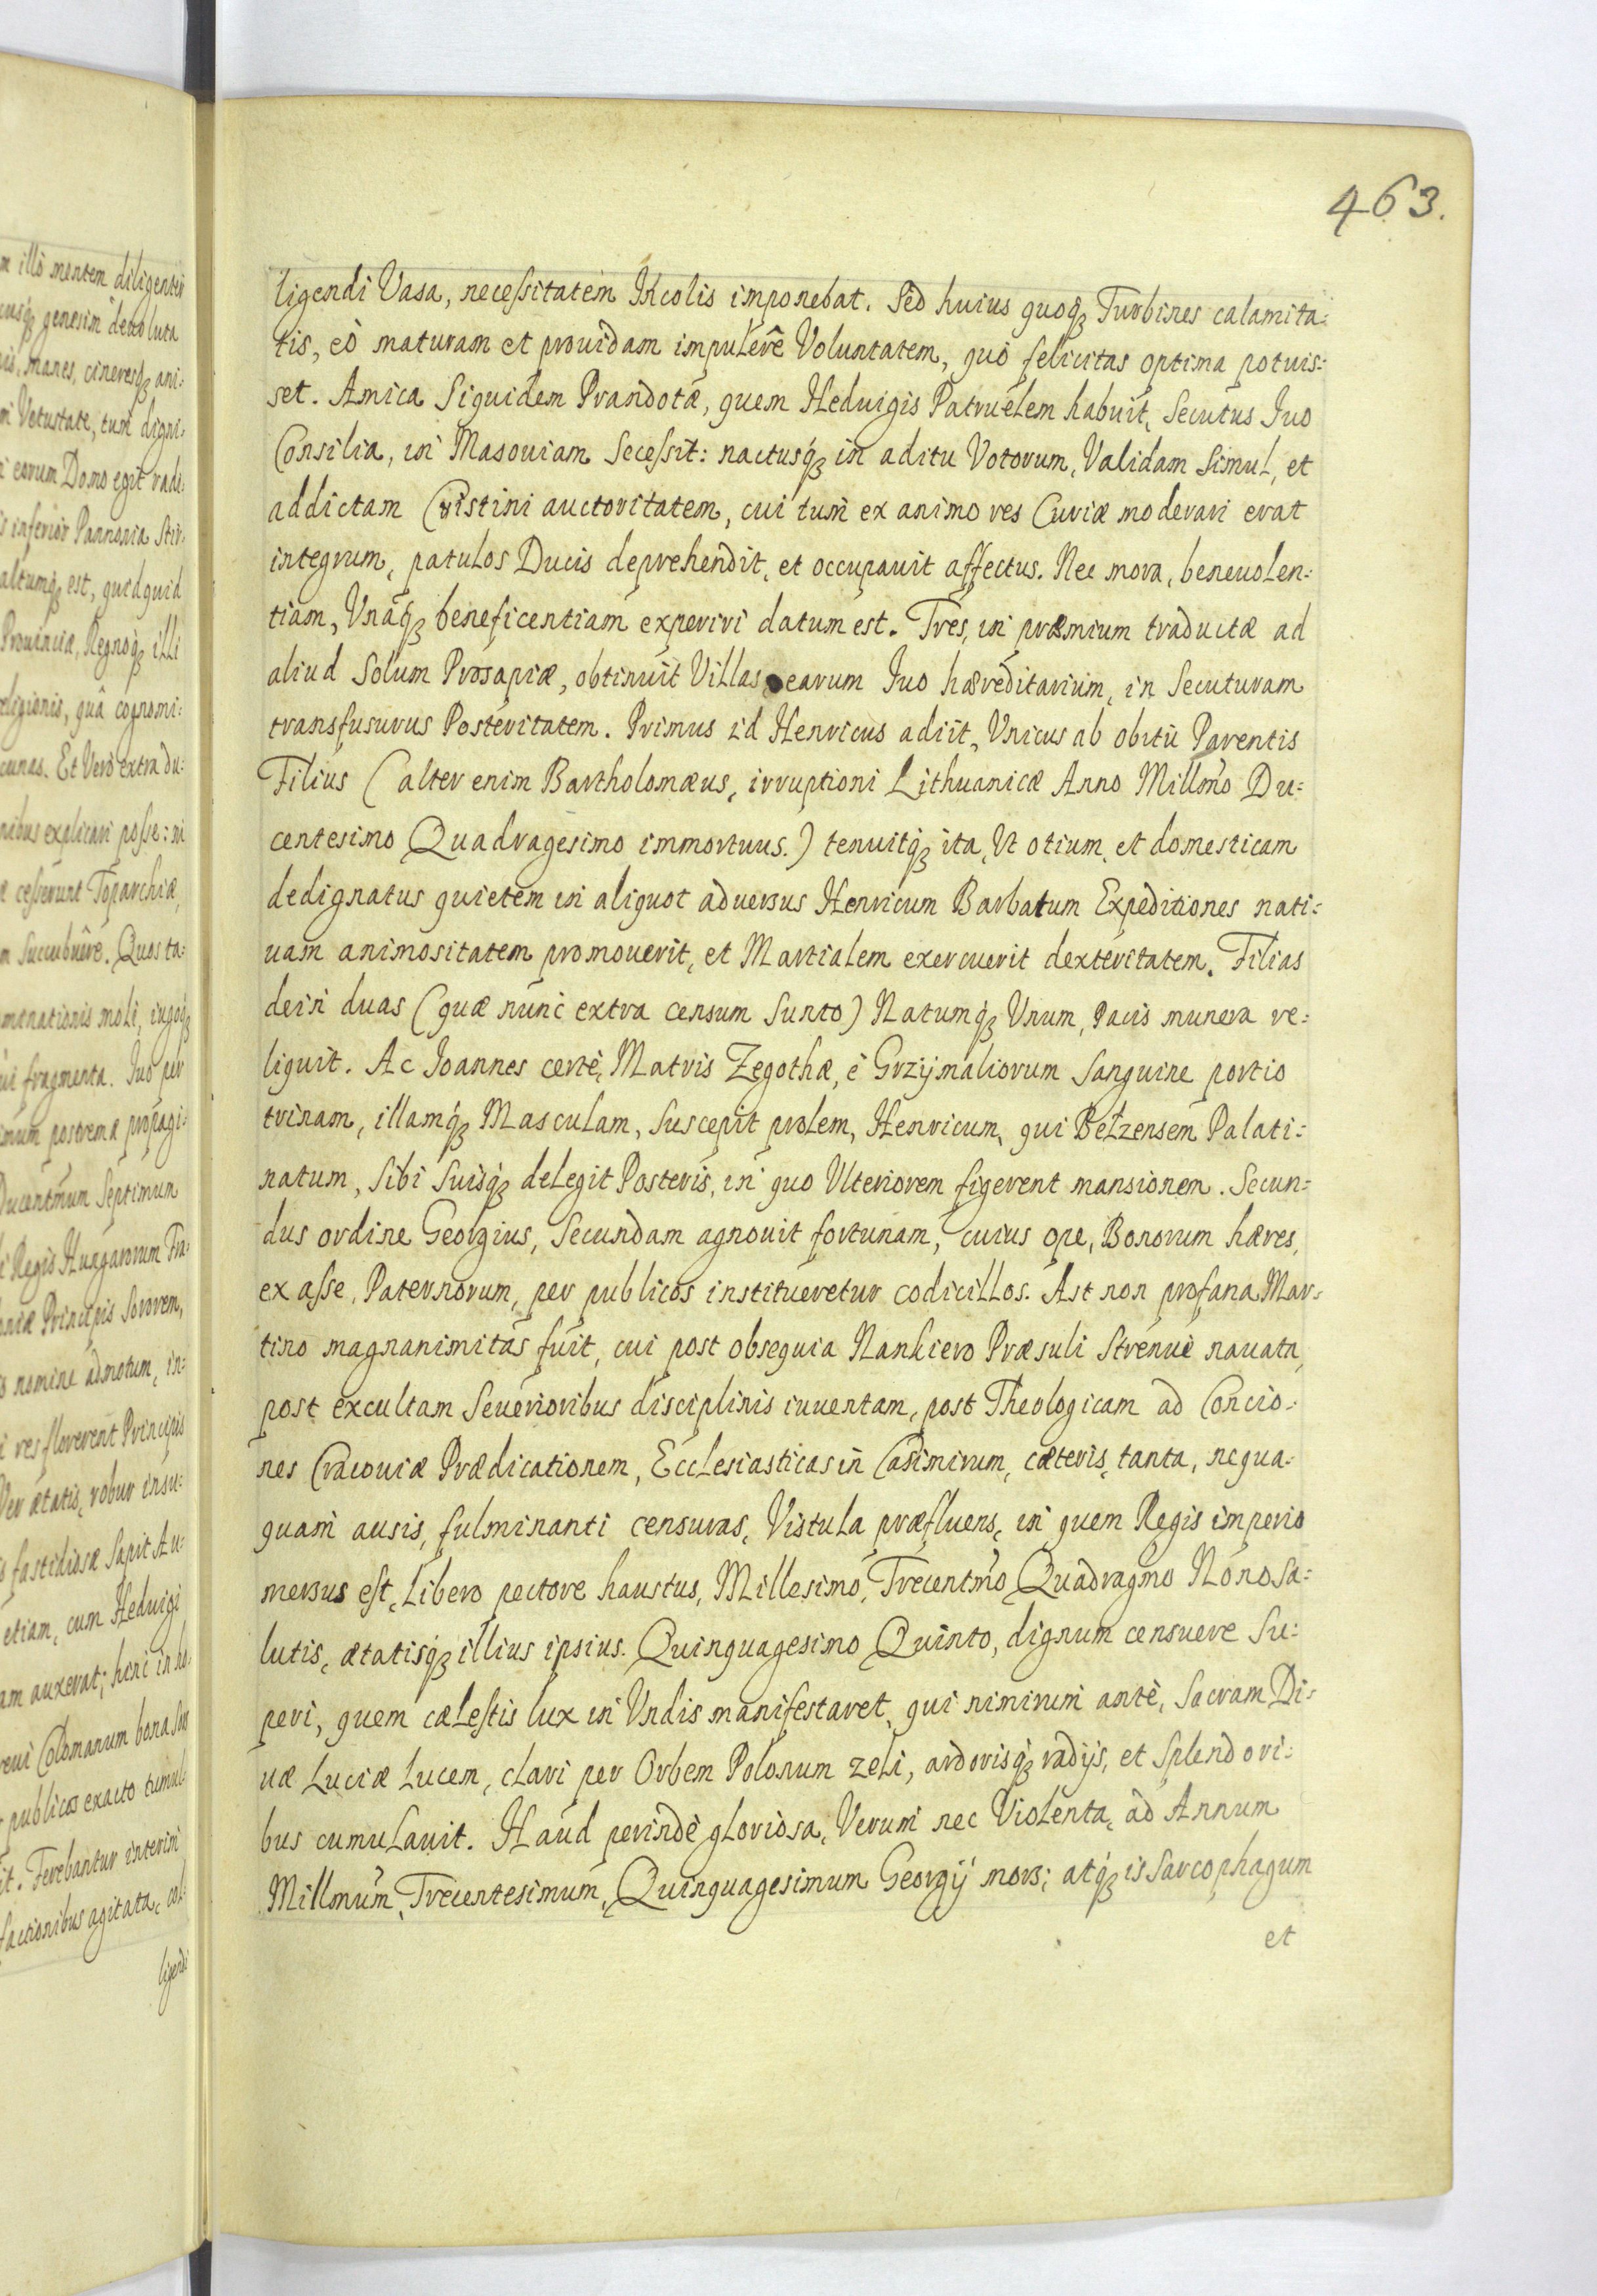 463.
ligendi Vasa, necessitatem Incolis imponebat. Sed huius quoq3 Turbines calamita:
tis, eò maturam et prouidam impulerê Voluntatem, quò felicitas optima potuis:
set. Amica Siquidem Prandotæ, quem Heduigis Patruelem habuit, Secutus Iuo
Consilia, in Masouiam Secessit: nactusq3 in aditu Votorum, Validam Simul, et
addictam Cristini auctoritatem, cui tum ex animo res Curiæ moderari erat
integrum, patulos Ducis deprehendit, et occupauit affectus. Nec mora, beneuolen:
tiam, Vnaq3 beneficentiam experiri datum est. Tres, in præmium traductæ ad
aliud Solum Prosapiæ, obtinuit Villas earum Iuo hæreditarium, in Secuturam
transfusurus Posteritatem. Primus id Henricus adiit, Vnicus ab obitu Parentis
Filius (alter enim Bartholomæus, irruptioni Lithuanicæ Anno Millmo Du:
centesimo Quadragesimo immortuus.) tenuitq3 ita, Vt otium, et domesticam
dedignatus quietem in aliquot aduersus Henricum Barbatum Expeditiones nati:
uam animositatem promouerit, et Martialem exercuerit dexteritatem. Filias
dein duas (quæ nunc extra censum Sunto) Natumq3 Vnum, Pacis munera re:
liquit. Ac Ioannes certè, Matris Zegothæ, è Grzijmaliorum Sanguine portio
trinam, illamq3 Masculam, Suscepit prolem, Henricum, qui Belzensem Palati:
natum, Sibi Suisq3 delegit Posteris, in quo Vlteriorem figerent mansionem. Secun:
dus ordine Georgius, Secundam agnouit fortunam, cuius ope, Bonorum hæres,
ex asse, Paternorum, per publicos institueretur codicillos. Ast non profana Mar:
tino magnanimitas fuit, cui post obsequia Nankiero Præsuli Strenuè nauata,
post excultam Seuerioribus disciplinis iuuentam, post Theologicam ad Concio:
nes Cracouiæ Prædicationem, Ecclesiasticas in Casimirum, cæteris, tanta, nequa:
quam ausis, fulminanti censuras, Vistula præfluens, in quem Regis imperio
mersus est, Libero pectore haustus, Millesimo, Trecentmo Quadragmo Nono Sa:
lutis, ætatisq3 illius ipsius. Quinquagesimo Quinto, dignum censuere Su:
peri, quem cælestis lux in Vndis manifestaret, qui nimirum antè, Sacram Di:
uæ Luciæ Lucem, clari per Orbem Polonum zeli, ardorisq3 radijs, et Splendori:
bus cumulauit. Haud perindè gloriosa, Verum nec Violenta, ad Annum
Millmum, Trecentesimum, Quinquagesimum Georgij mors; atq3 is Sarcophagum
et